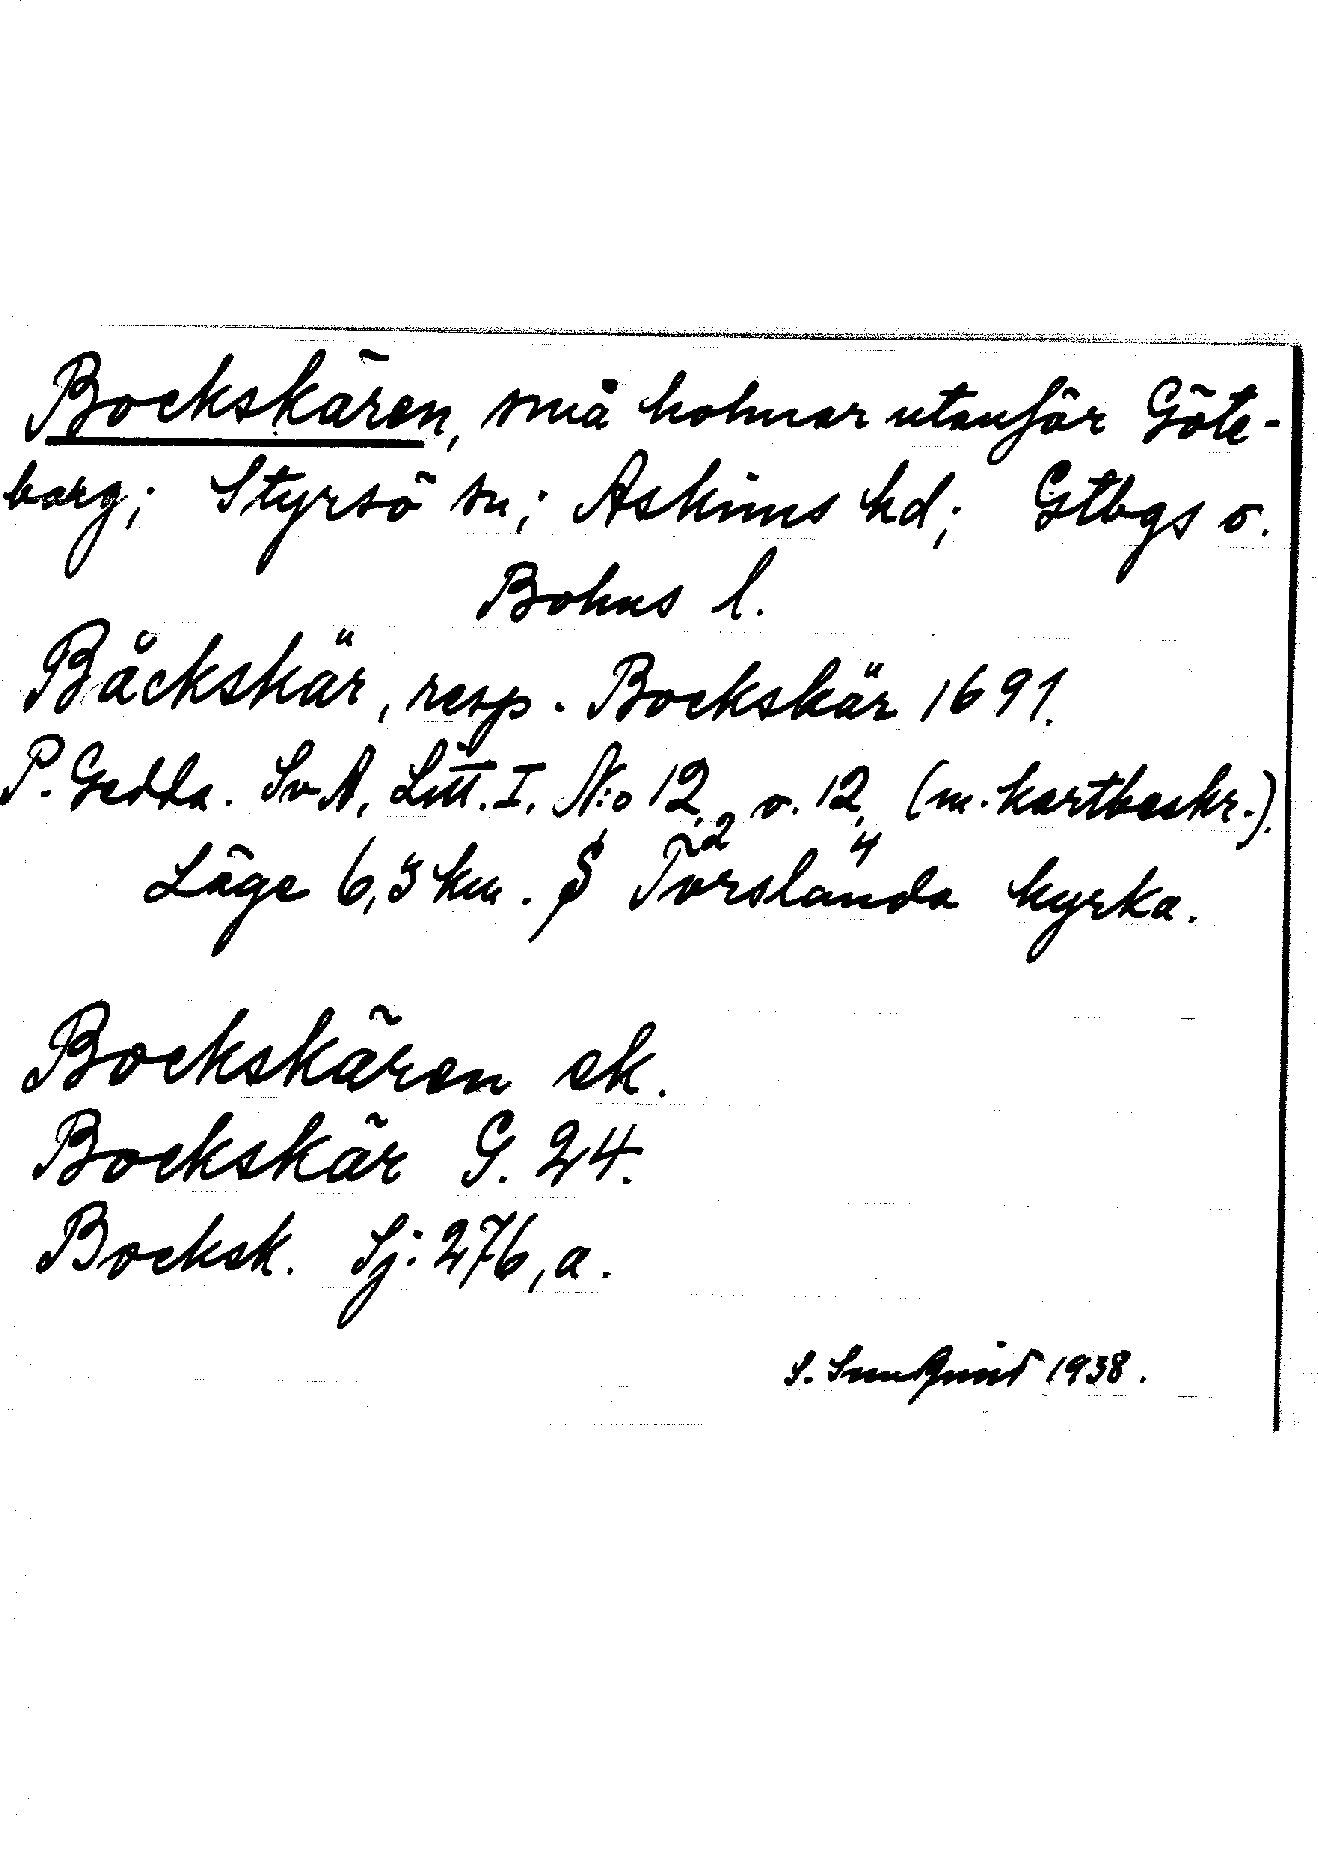 Bockskären, små holmar utanför Göte-
borg; Styrsö sn; Askims hd; Gtbgs o.
Bohus l.
Båckskär, resp. Bockskär 1691.
P. Gedda. Sv. A. Litt. I. N:o 12,2 o. 12,4 (m. kartbeskr.).
Läge 6,3 km. S Torslanda kyrka.
Bockskären ek.
Bockskär G. 24.
Bocksk. Sj: 276, a.
S. Sundquist 1938.